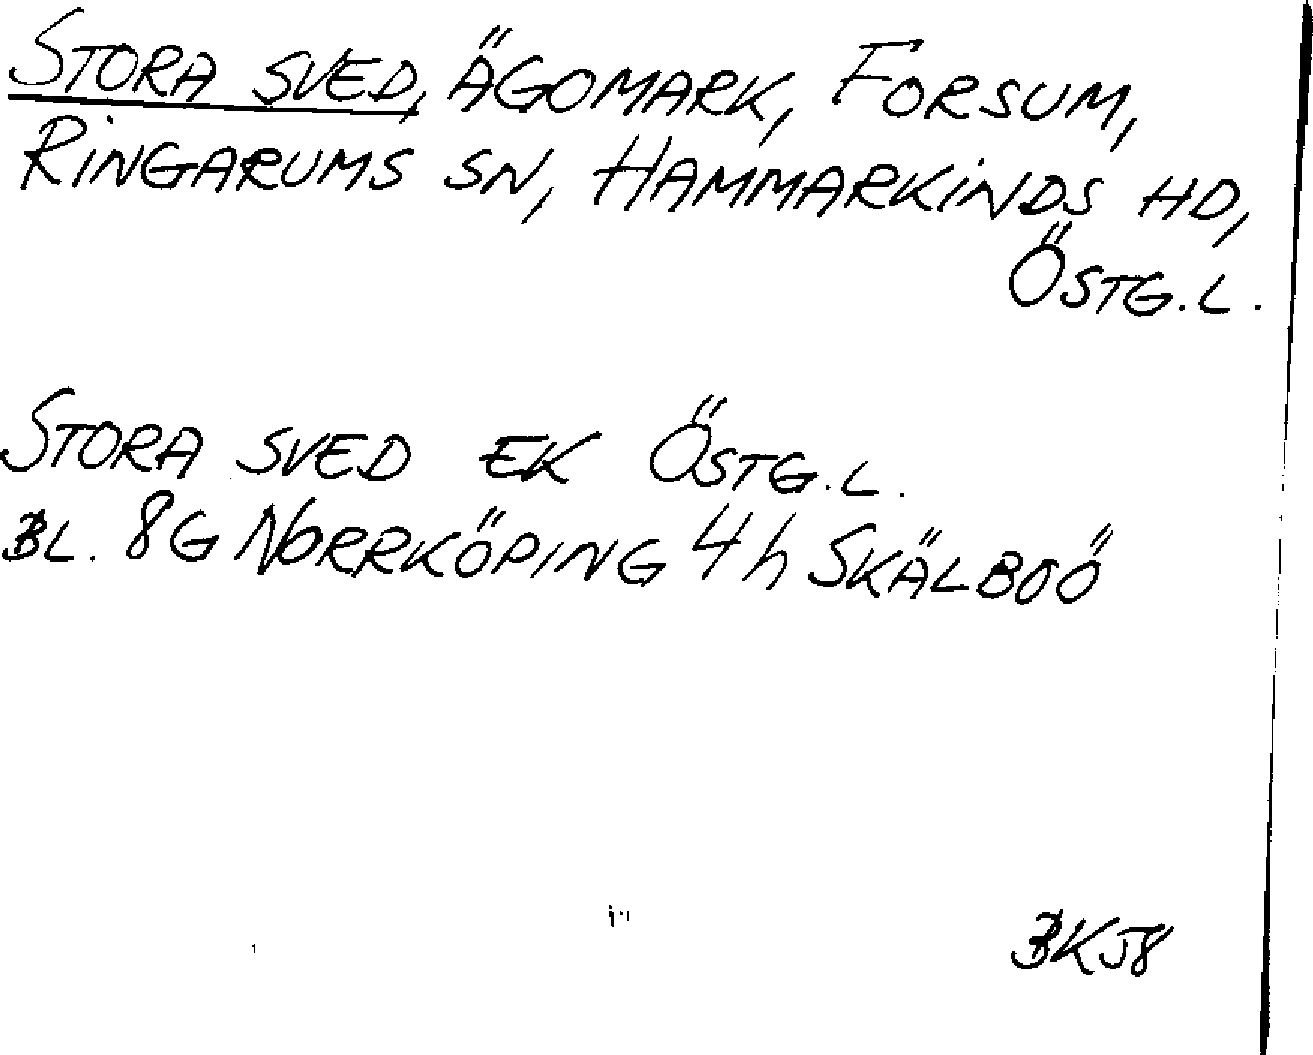 STORA SVED, ÄGOMARK, FORSUM,
RINGARUMS SN, HAMMARKINDS HD,
ÖSTG.L.
STORA SVED EK ÖSTG.L.
BL. 8G NORRKÖPING 4h SKÄLBOÖ
BKJ8